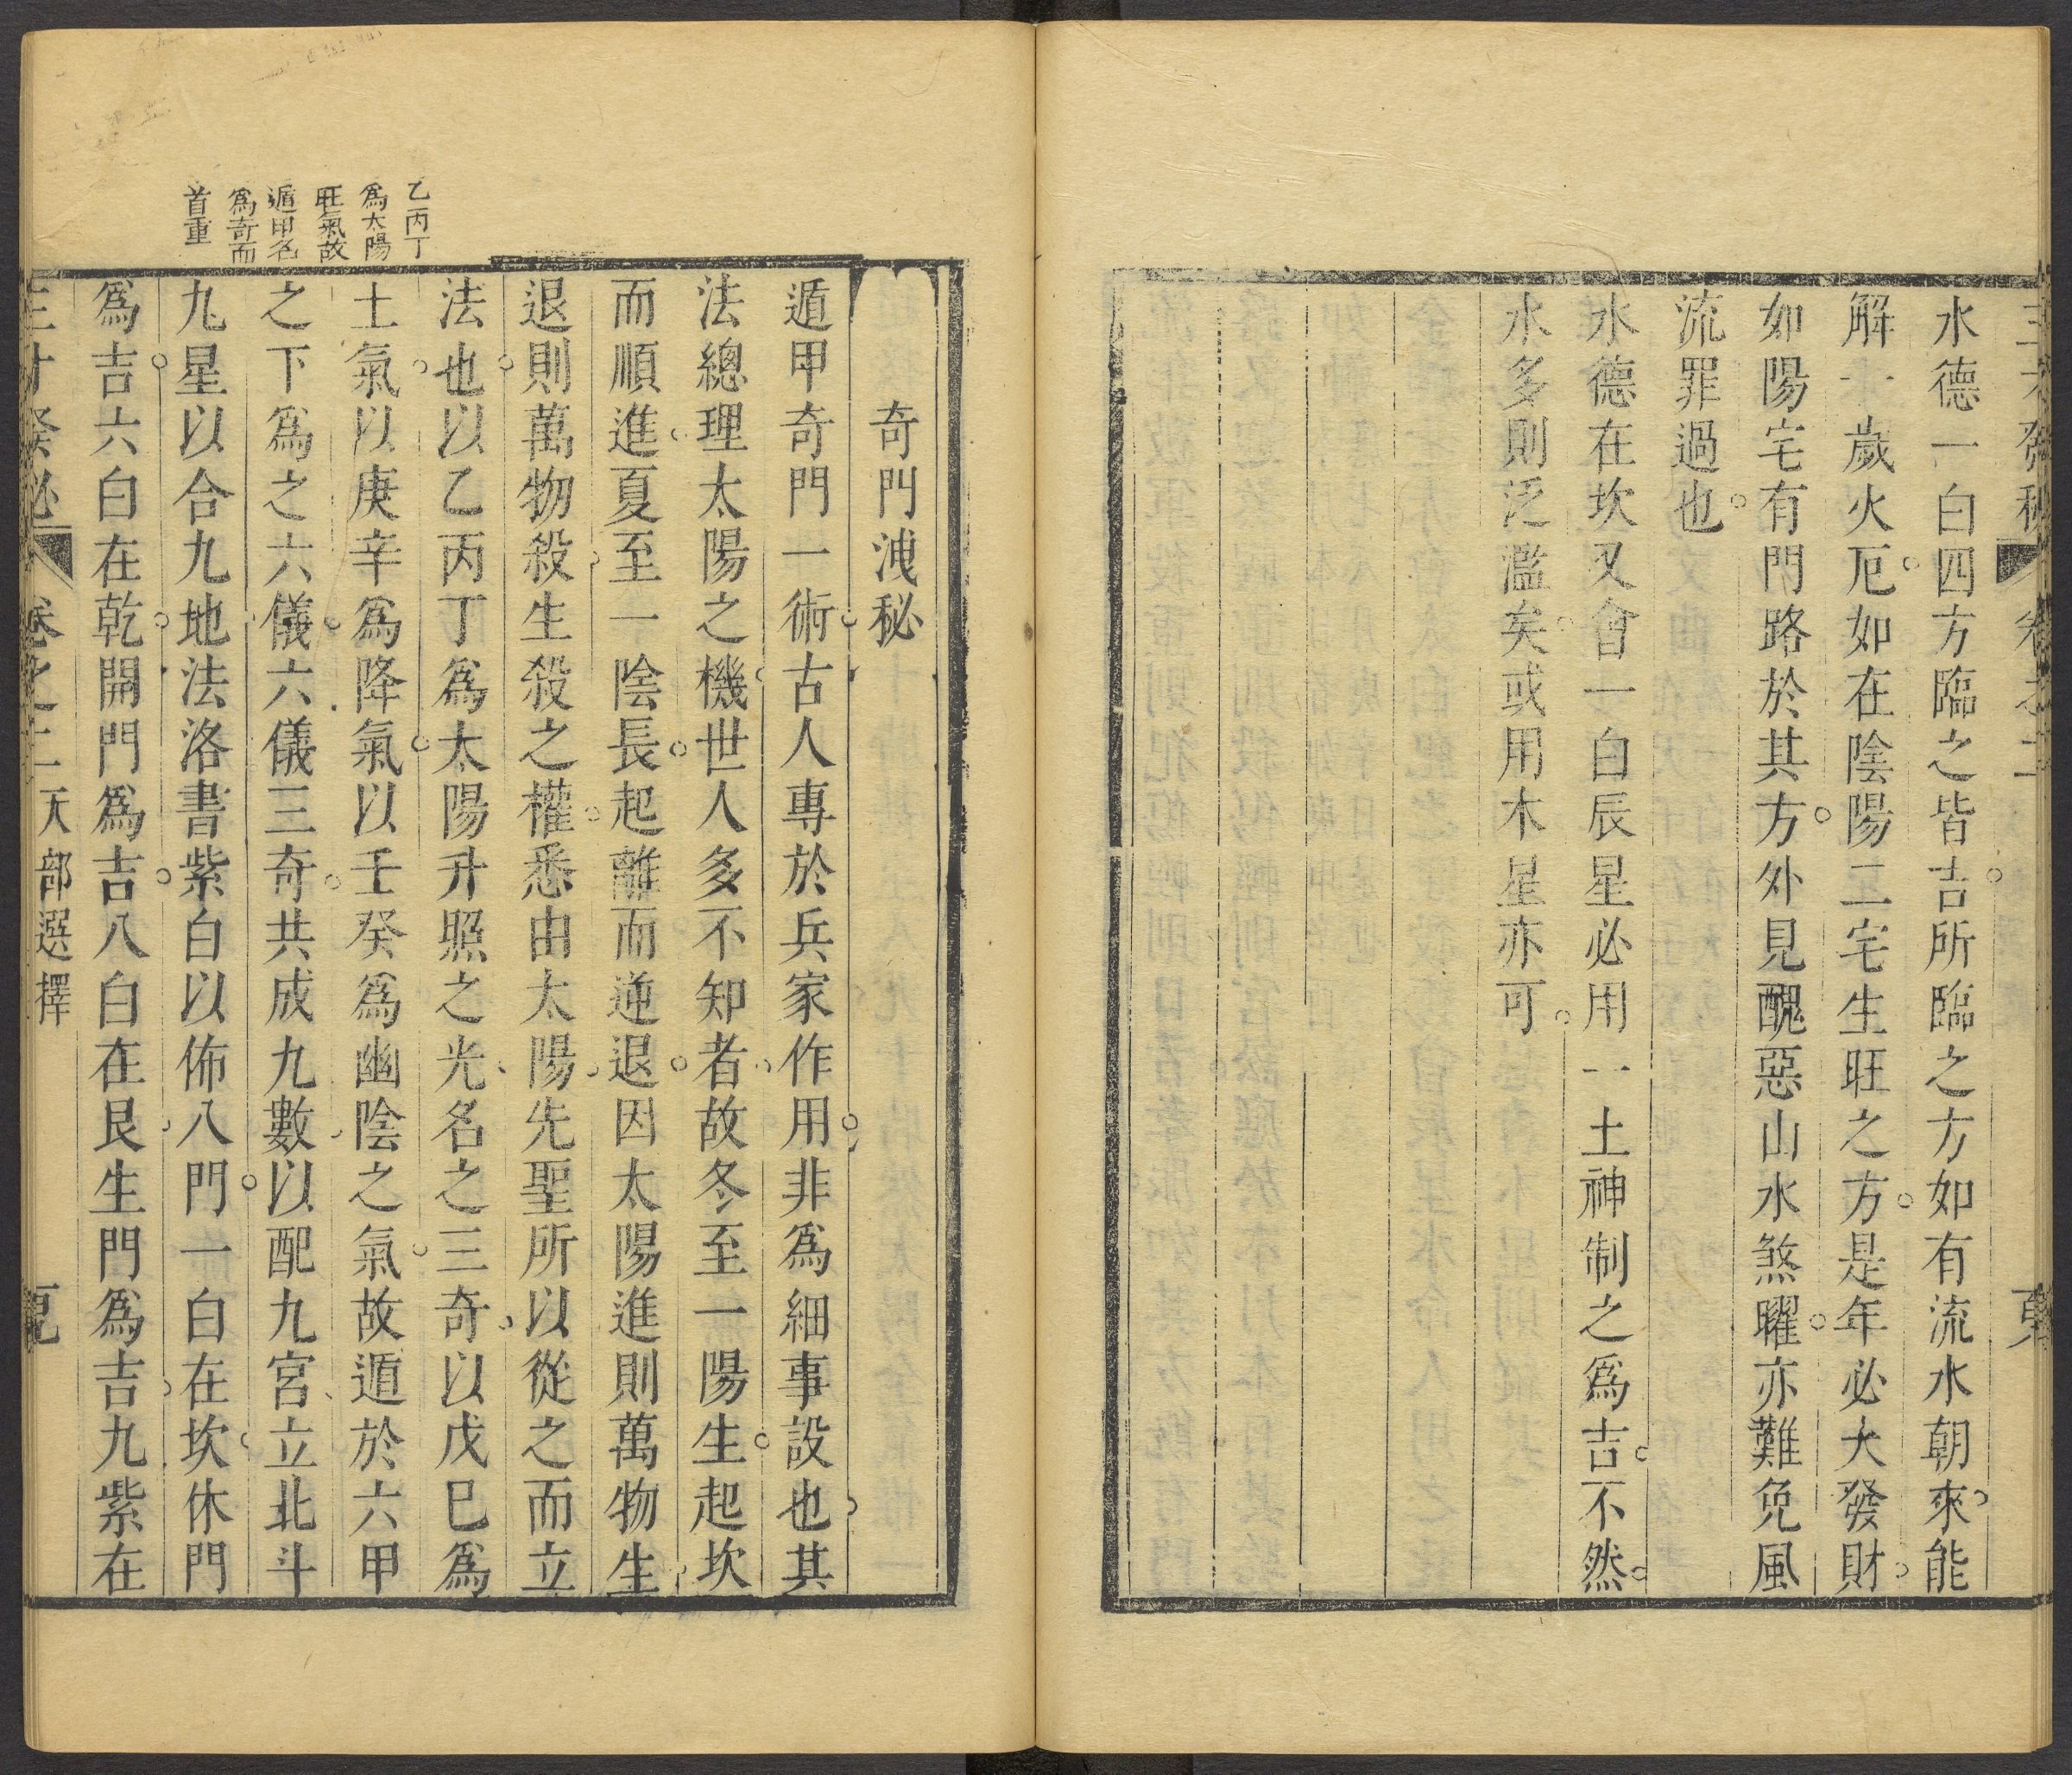 三才發秘
卷之二
水德一白四方臨之皆吉所臨之方如有流水朝來能
解十歲火厄如在陰陽二宅生旺之方是年必大發財
如陽宅有門路於其方外見醜惡山水煞曜亦難免風
流罪過也
水德在坎又會一白辰星必用一土神制之爲吉不然
水多則泛濫矣或用木星亦可
奇門洩秘
遁甲奇門一術古人專於兵家作用非爲細事設也其
法總理太陽之機世人多不知者故冬至一陽生起坎
而順進夏至一陰長起離而逆退因太陽進則萬物生
退則萬物殺生殺之權悉由太陽先聖所以從之而立
法也以乙丙丁爲太陽升照之光名之三奇以戊巳爲
土氣以庚辛爲降氣以壬癸爲幽陰之氣故遁於六甲
之下爲之六儀六儀三奇共成九數以配九宮立北斗
九星以合九地法洛書紫白以佈八門一白在坎休門
爲吉六白在乾開門爲吉八白在艮生門爲吉九紫在
乙丙丁
爲太陽
旺氣故
遁甲名
爲奇而
首重
三才發秘
卷之二天部選擇